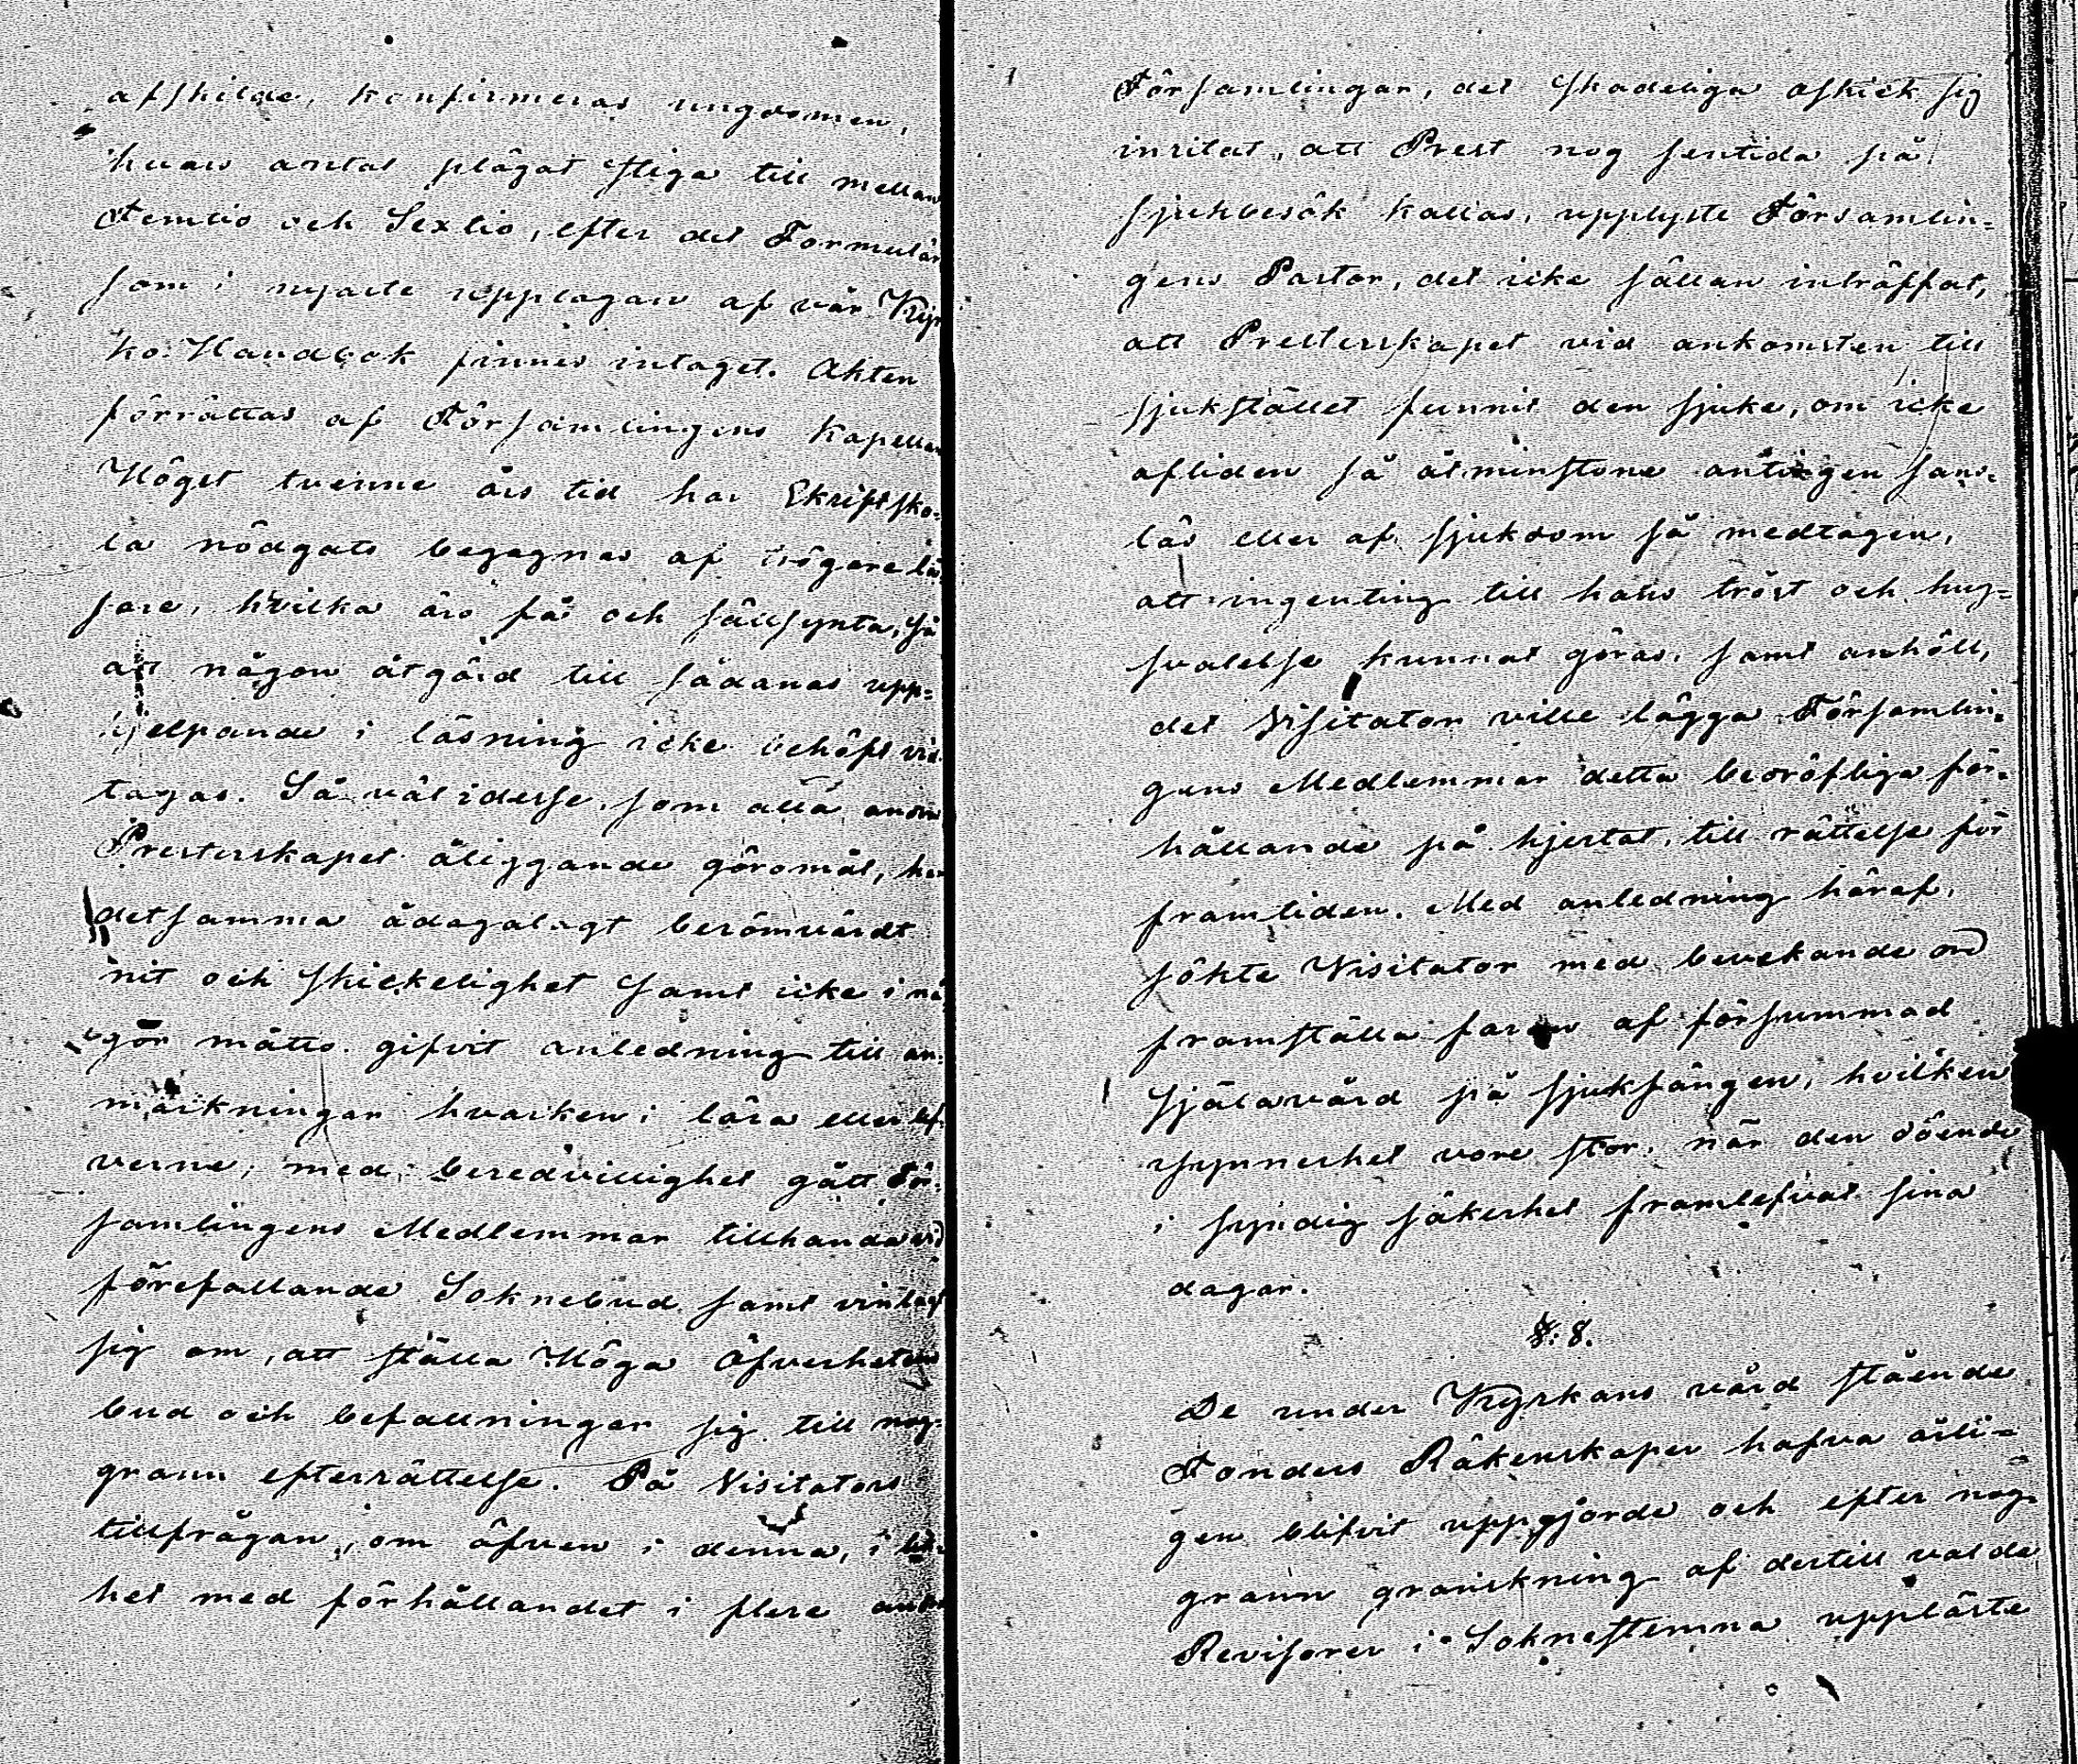 afskilde, konfirmeras ungdomen,
hvars antal plägat stiga till mellan
Femtio och Sextio, efter det Formulär
som i nyaste upplagan af vår Kyr
ko-Handbok finnes intaget. Akten
förrättas af Församlingens Kapellan
Höget tvenne års tid har Skriftsko-
la nödgats begagnas af trögare lä
sare, hvilka äro få och sällsynta, så
att någon åtgärd till sådanas upp-
hjelpande i läsning icke behöft vid
tagas. Så väl i desse, som alla andra
Presterskapet åliggande göromål, har
detsamma ådagalagt berömvärdt
nit och skickelighet samt icke i nå
gor måtto gifvit anledning till an-
märkningar hvarken i lära eller lef
verne, med beredvillighet gått För-
samlingens Medlemmar tillhanda vid
förefallande Soknebud samt vinlagt
sig om, att ställa Höga Öfverhetens
bud och befallningar sig till nog-
grann efterrättelse. På Visitators
tillfrågan, om äfven i denna, i lik-
het med förhållandet i flere andra
Församlingar, det skadeliga asskick sig
insitat, att Prest nog sentida på
sjukbesök kallas, upplyste Församlin-
gens Pastor, det icke sällan inträffat,
att Presterskapet vid ankomsten till
sjukstället funnit den sjuke, om icke
afliden så åtminstone antingen sans-
lös eller af sjukdom så medtagen,
att ingenting till hans tröst och hug-
svalelse kunnat göras, samt anhöll,
det Visitator ville lägga Församlin-
gens Medlemmar detta bedröfliga för-
hållande på hjertat, till rättelse för
framtiden. Med anledning häraf,
sökte Visitator med bevekande ord
framställa faran af försummad
Själavård på sjuksängen, hvilken
synnerhet vore stor, när den döende
i syndig säkerhet framlefvat sina
dagar.
§. 8.
De under Kyrkans vård stående
Fonders Räkenskaper hafva årli-
gen blifvit uppgjorde och efter nog-
grann granskning af dertill valde
Revisorer i Soknestemma uppläste